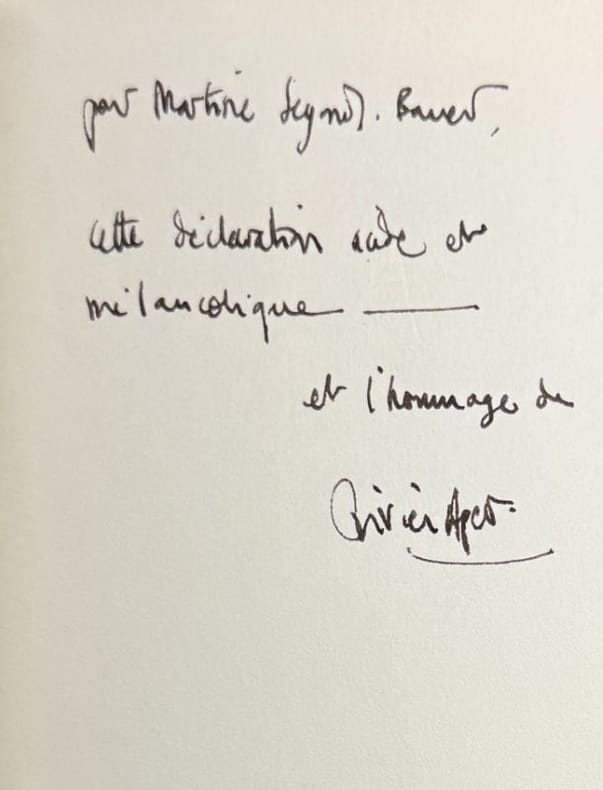 pour Martine Bauer,
cette déclaration acide et
mélancolique —
et l'hommage de
Olivier Apert.